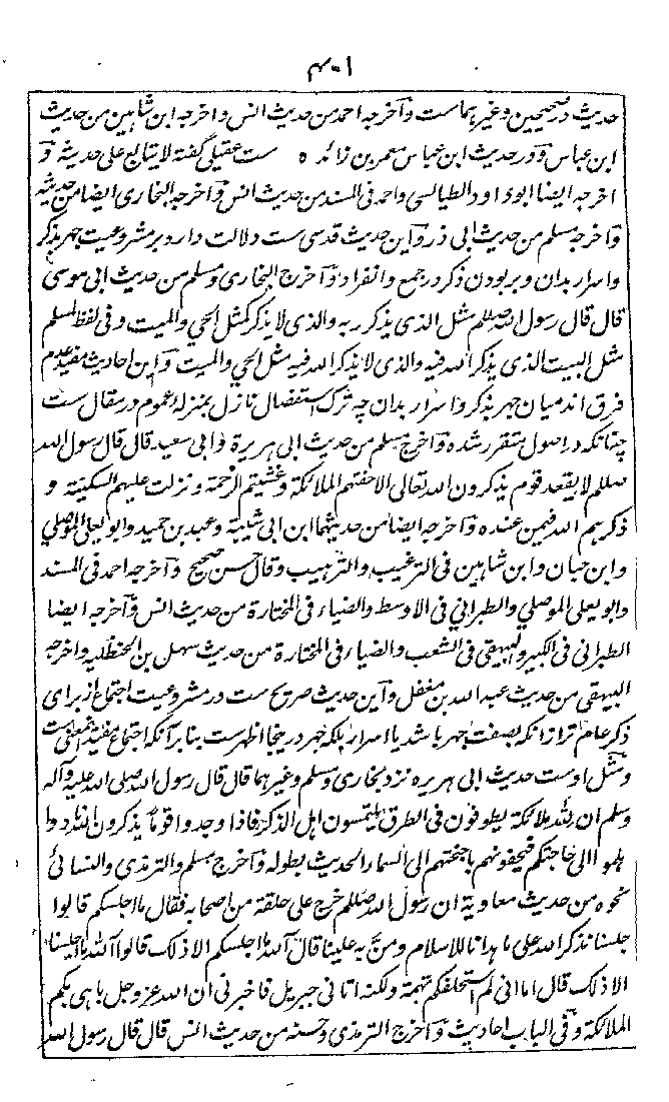 ۳۰۱
حدیث در صحیحین و غیرہماست و آخرجہ احمد من حدیث انس و اخرجہ ابن شاہین من حدیث
ابن عباس و در حدیث ابن عباس معمر بن زائدہ ست عقیلی گفتہ لا یتابع علی حدیثہ و
اخرجہ ایضا ابو داود الطیالسی واحمد فی المسند من حدیث انس و آخرجہ البخاری ایضا من حدیثہ
و آخرجہ مسلم من حدیث ابی ذر و این حدیث قدسی ست دلالت دارد بر مشروعیت جہر بذکر
واسرار بدان و بر بودن ذکر در جمع وانفراد و آخرج البخاری ومسلم من حدیث ابی موسی
قال قال رسول اللہ صللم مثل الذی یذکر ربہ والذی لا یذکر کمثل الحی والمیت وفی لفظ لمسلم
مثل البیت الذی یذکر اللہ فیہ والذی لا یذکر اللہ فیہ مثل الحی والمیت و این احادیث مفید عدم
فرق اند میان جہر بذکر و اسرار بدان چہ ترک استفصال نازل بمنزلہ عموم در مقال ست
چنانکہ در اصول متقرر شدہ و آخرج مسلم من حدیث ابی ہریرة وابی سعید قال قال رسول اللہ
صللم لا یقعد قوم یذکرون اللہ تعالی الا حفتہم الملائکة وغشیتہم الرحمة ونزلت علیہم السکینة و
ذکرہم اللہ فیمن عندہ و آخرجہ ایضا من حدیثہما ابن ابی شیبة وعبد بن حمید وابو یعلی الموصلی
وابن حبان وابن شاہین فی الترغیب والترہیب وقال حسن صحیح و آخرجہ احمد فی المسند
وابو یعلی الموصلی والطبرانی فی الاوسط والضیاء فی المختارة من حدیث انس و آخرجہ ایضا
الطبرانی فی الکبیر والبیہقی فی الشعب والضیاء فی المختارة من حدیث سہل بن الحنظلیہ واخرجہ
البیہقی من حدیث عبد اللہ بن مغفل و این حدیث صریح ست در مشروعیت اجتماع از برای
ذکر عام تر از انکہ بصفت جہر باشد یا اسرار بلکہ جہر درینجا اظہرست بنا برآنکہ اجتماع مفید
ومثل اوست حدیث ابی ہریرہ نزد بخاری ومسلم وغیرہما قال قال رسول اللہ صلی اللہ علیہ وآلہ
وسلم ان للہ ملائکة یطوفون فی الطرق یلتمسون اہل الذکر فاذا وجدوا قوما یذکرون اللہ تنادوا
ہلموا الی حاجتکم فیحفونہم باجنحتہم الی السماء الحدیث بطولہ و آخرج مسلم والترمذی والنسائی
نحوہ من حدیث معاویة ان رسول اللہ صللم خرج علی حلقة من اصحابہ فقال ما اجلسکم قالوا
جلسنا نذکر اللہ علی ما ہدانا للاسلام ومن بہ علینا قال آللہ ما اجلسکم الا ذلک قالوا آللہ ما اجلسنا
الا ذلک قال اما انی لم استحلفکم تہمة ولکنہ اتانی جبریل فاخبرنی ان اللہ عز وجل یباہی بکم
الملائکة و فی الباب احادیث و آخرج الترمذی وحسنہ من حدیث انس قال قال رسول اللہ